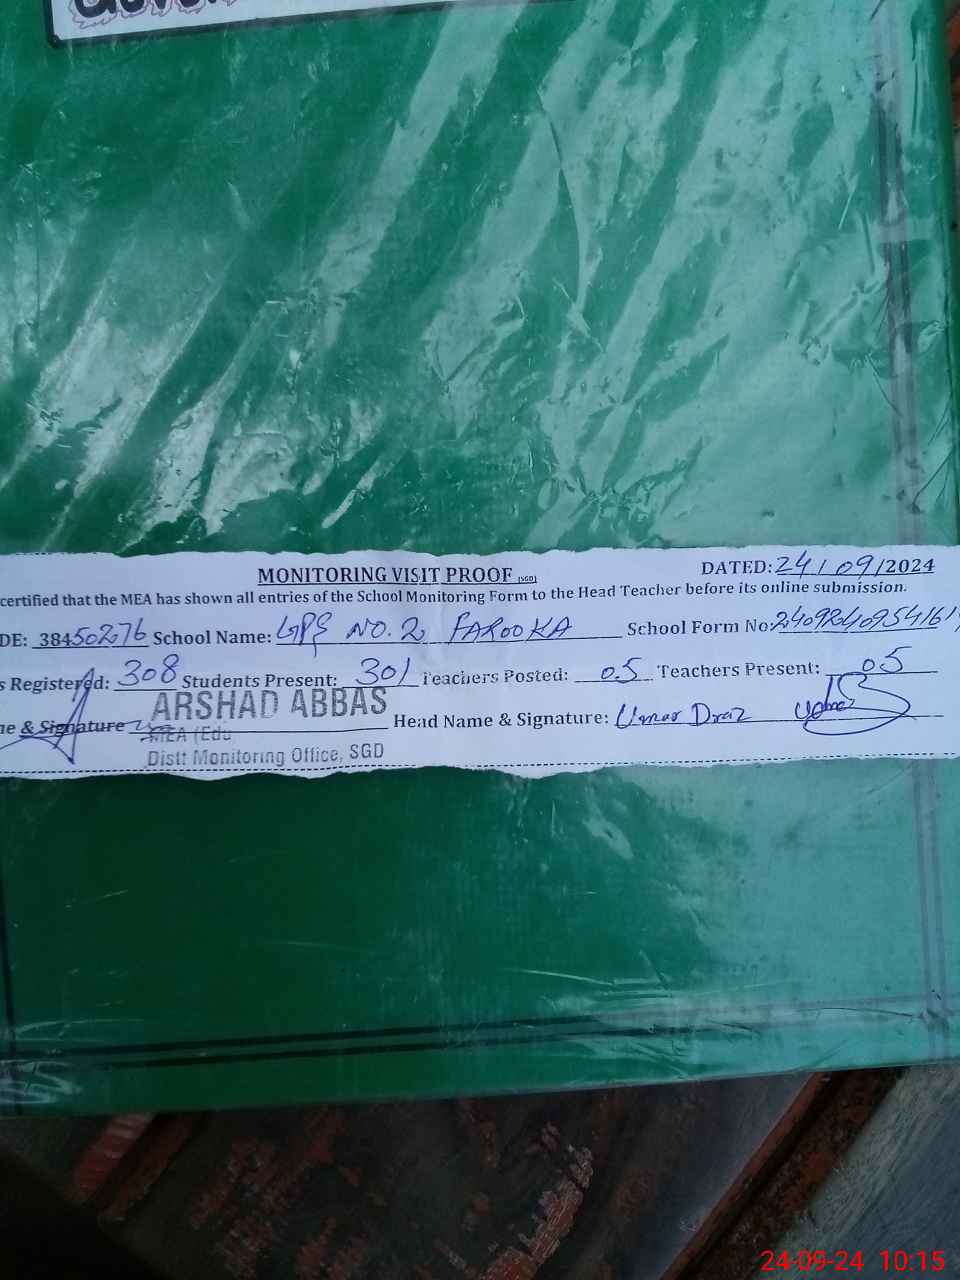 MONITORING VISIT PROOF (SGD) DATED: 24/09/2024
certified that the MEA has shown all entries of the School Monitoring Form to the Head Teacher before its online submission.
DE: 38450276 School Name: GPS NO. 2 FAROOKA School Form No:
s Registered: 308 Students Present: 301 Teachers Posted: 05 Teachers Present: 05
ne & Signature ARSHAD ABBAS Head Name & Signature: Umar Draz
MEA (Edu
Distt Monitoring Office, SGD
24-09-24 10:15